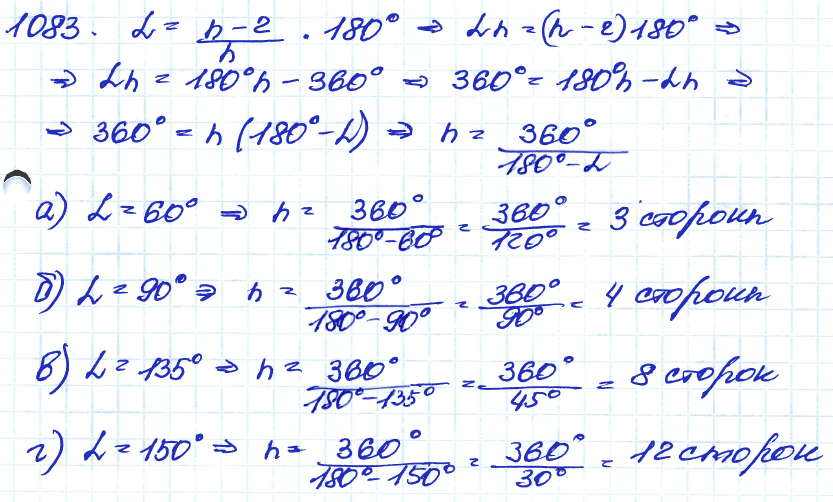 1083. α = (n-2)/n · 180° ⇒ αn = (n-2)180° ⇒
⇒ αn = 180°n - 360° ⇒ 360° = 180°n - αn ⇒
⇒ 360° = n(180°-α) ⇒ n = 360°/(180°-α)
а) α = 60° ⇒ n = 360°/(180°-60°) = 360°/120° = 3 стороны
б) α = 90° ⇒ n = 360°/(180°-90°) = 360°/90° = 4 стороны
в) α = 135° ⇒ n = 360°/(180°-135°) = 360°/45° = 8 сторон
г) α = 150° ⇒ n = 360°/(180°-150°) = 360°/30° = 12 сторон